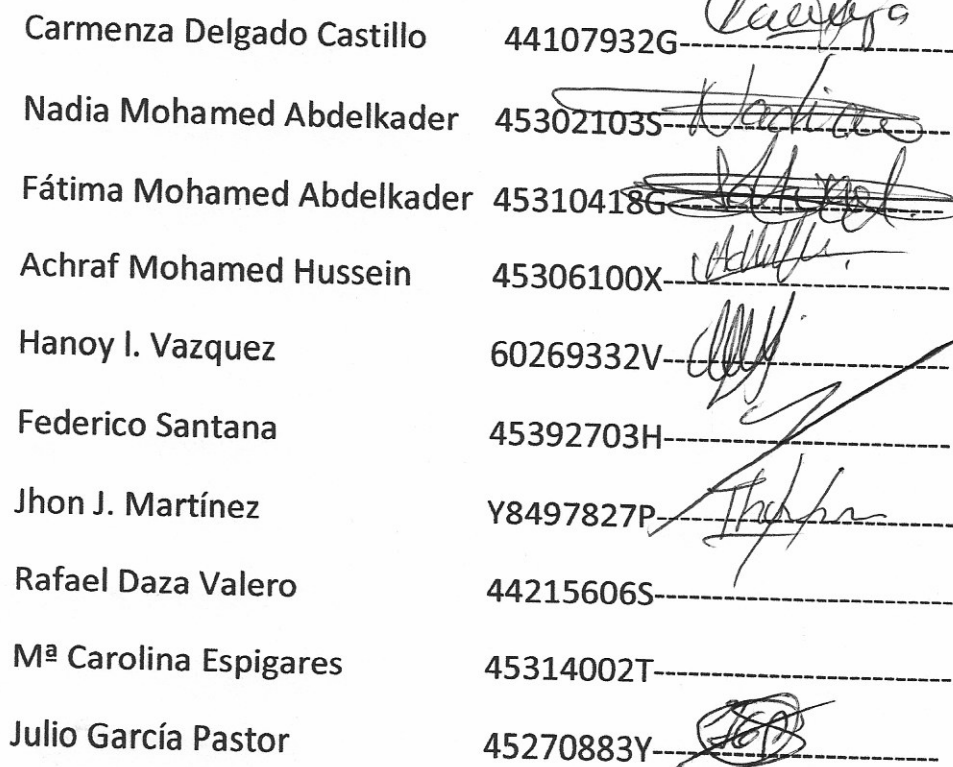 Carmenza Delgado Castillo 44107932G----------------------
Nadia Mohamed Abdelkader 45302103S-- Nadia ----
Fátima Mohamed Abdelkader 45310418G----------------------
Achraf Mohamed Hussein 45306100X----------------------
Hanoy I. Vazquez 60269332V----------------------
Federico Santana 45392703H----------------------
Jhon J. Martínez Y8497827P----------------------
Rafael Daza Valero 44215606S----------------------
Mª Carolina Espigares 45314002T----------------------
Julio García Pastor 45270883Y----------------------